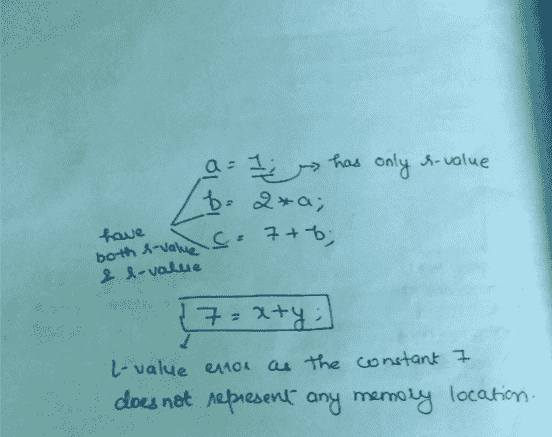 a = 1; → has only r-value
b = 2*a;
c = 7+b;
have
both r-value
& l-value
7 = x+y;
L-value error as the constant 7
does not represent any memory location.